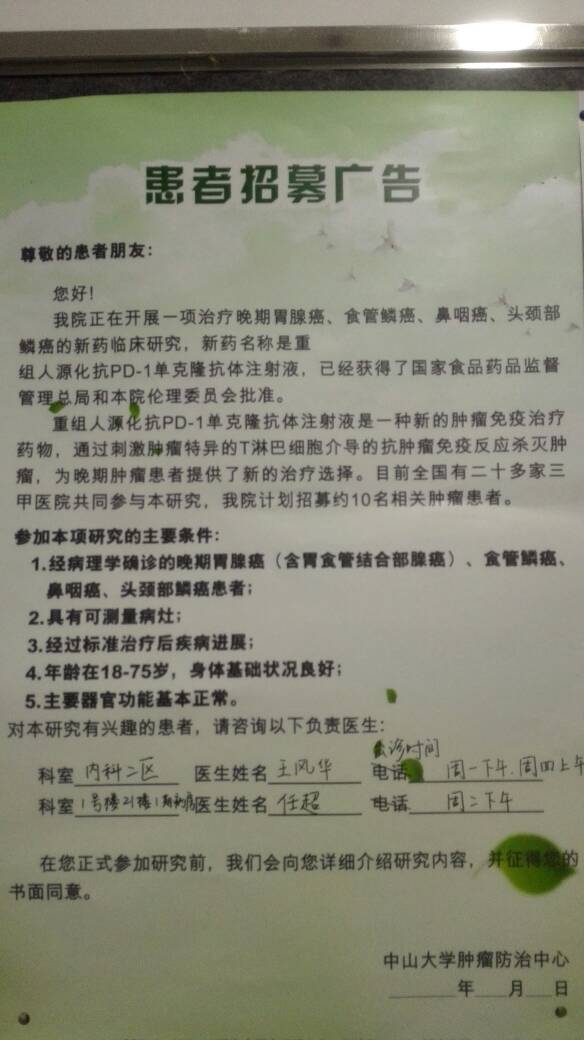 患者招募广告
尊敬的患者朋友：
您好！
我院正在开展一项治疗晚期胃腺癌、食管鳞癌、鼻咽癌、头颈部
鳞癌的新药临床研究，新药名称是重
组人源化抗PD-1单克隆抗体注射液，已经获得了国家食品药品监督
管理总局和本院伦理委员会批准。
重组人源化抗PD-1单克隆抗体注射液是一种新的肿瘤免疫治疗
药物，通过刺激肿瘤特异的T淋巴细胞介导的抗肿瘤免疫反应杀灭肿
瘤，为晚期肿瘤患者提供了新的治疗选择。目前全国有二十多家三
甲医院共同参与本研究，我院计划招募约10名相关肿瘤患者。
参加本项研究的主要条件：
1.经病理学确诊的晚期胃腺癌（含胃食管结合部腺癌）、食管鳞癌、
鼻咽癌、头颈部鳞癌患者；
2.具有可测量病灶；
3.经过标准治疗后疾病进展；
4.年龄在18-75岁，身体基础状况良好；
5.主要器官功能基本正常。
对本研究有兴趣的患者，请咨询以下负责医生：
诊时间
科室 内科二区 医生姓名 王风华 电话 周一下午.周四上午
科室 1号楼21楼1期病房 医生姓名 任超 电话 周二下午
在您正式参加研究前，我们会向您详细介绍研究内容，并征得您的
书面同意。
中山大学肿瘤防治中心
年 月 日